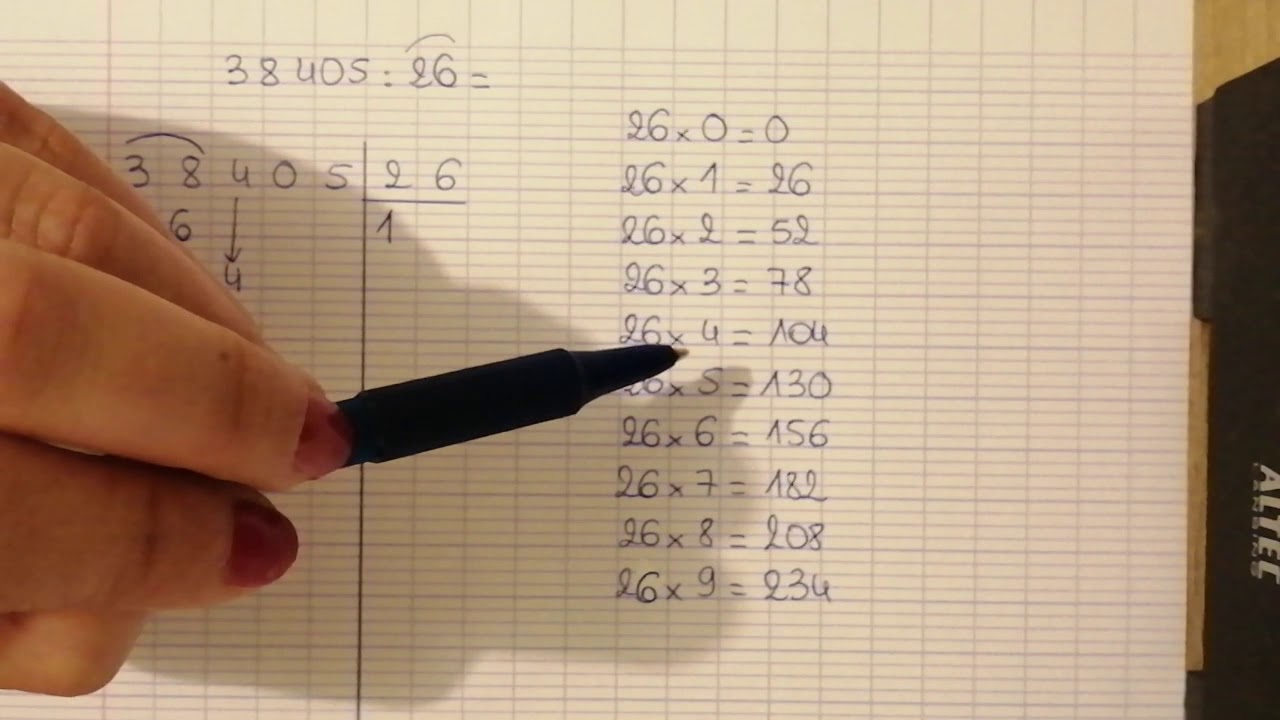 38405 : 26 =
3 8 4 0 5 2 6
6 1
4
26 x 0 = 0
26 x 1 = 26
26 x 2 = 52
26 x 3 = 78
26 x 4 = 104
26 x 5 = 130
26 x 6 = 156
26 x 7 = 182
26 x 8 = 208
26 x 9 = 234
ALTEC